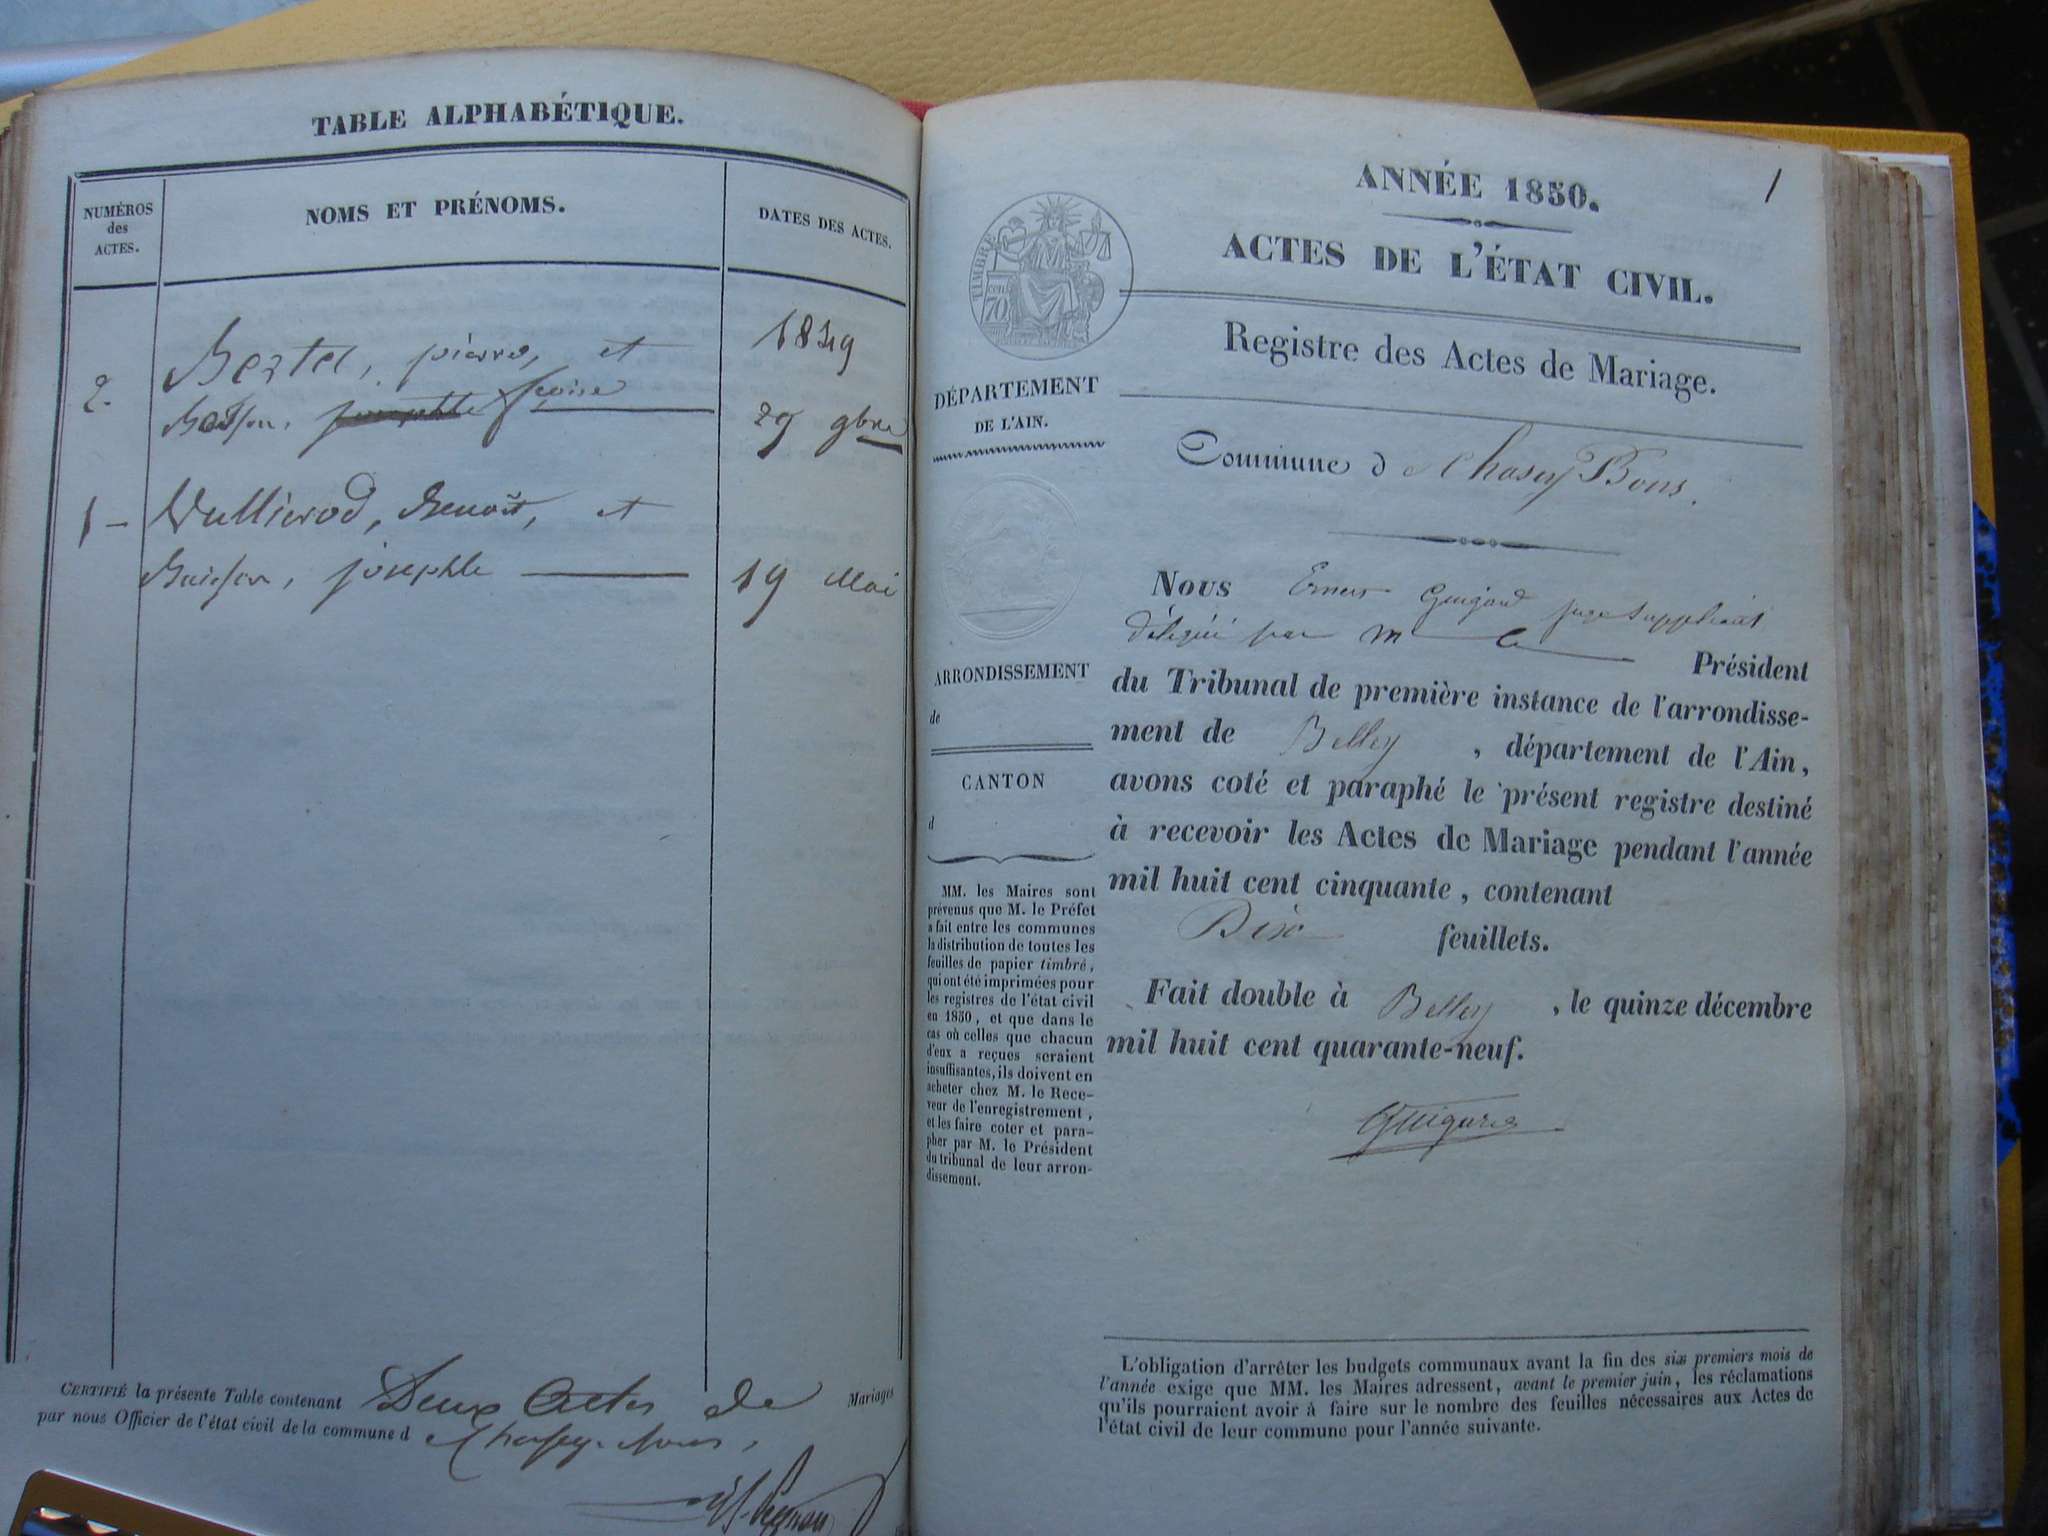 TABLE ALPHABÉTIQUE.
NUMÉROS
des
ACTES.
NOMS ET PRÉNOMS.
DATES DES ACTES.
1849
2. Bertet, pierre, et
29 9bre
1 — Vullierod, Benoît, et
josephte 19 Mai
CERTIFIÉ la présente Table contenant Deux Actes de Mariages
par nous Officier de l'état civil de la commune d
1
ANNÉE 1850.
ACTES DE L'ÉTAT CIVIL.
Registre des Actes de Mariage.
TIMBRE
cen
70
DÉPARTEMENT
DE L'AIN.
Commune de Chasey Bons.
Nous Guigard juge suppléant
délégué par M le Président
du Tribunal de première instance de l'arrondisse-
ment de Belley , département de l'Ain,
avons coté et paraphé le présent registre destiné
à recevoir les Actes de Mariage pendant l'année
mil huit cent cinquante, contenant
Dix feuillets.
Fait double à Belley , le quinze décembre
mil huit cent quarante-neuf.
Guigard
ARRONDISSEMENT
de
CANTON
d
MM. les Maires sont
prévenus que M. le Préfet
a fait entre les communes
la distribution de toutes les
feuilles de papier timbré,
qui ont été imprimées pour
les registres de l'état civil
en 1850, et que dans le
cas où celles que chacun
d'eux a reçues seraient
insuffisantes, ils doivent en
acheter chez M. le Rece-
veur de l'enregistrement,
et les faire coter et para-
pher par M. le Président
du tribunal de leur arron-
dissement.
L'obligation d'arrêter les budgets communaux avant la fin des six premiers mois de
l'année exige que MM. les Maires adressent, avant le premier juin, les réclamations
qu'ils pourraient avoir à faire sur le nombre des feuilles nécessaires aux Actes de
l'état civil de leur commune pour l'année suivante.